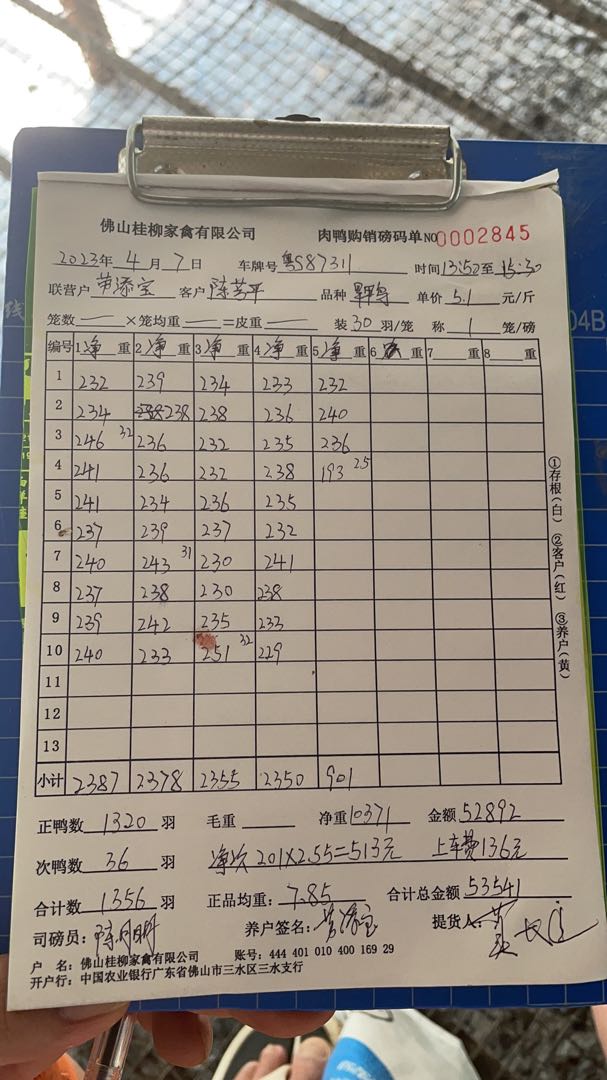 佛山桂柳家禽有限公司 肉鸭购销磅码单 NO 0002845
2023年 4 月 7 日 车牌号 粤S87311 时间 13:52 至 15:30
联营户 劳添宝 客户 陈芳平 品种 单价 5.1 元/斤
笼数 — ×笼均重 — =皮重 — 装 30 羽/笼 称 1 笼/磅
编号 1 净 重 2 净 重 3 净 重 4 净 重 5 净 重 6 重 7 重 8 重
1 232 239 234 233 232
2 234 238 238 236 240
3 246 32 236 232 235 236
4 241 236 232 238 193 25
5 241 234 236 235
6 237 239 237 232
7 240 243 31 230 241
8 237 238 230 238
9 239 242 235 233
10 240 233 251 32 229
11
12
13
小计 2387 2378 2355 2350 901
正鸭数 1320 羽 毛重 — 净重 10371 金额 52892
次鸭数 36 羽 净次 201×2.55=513元 上车费136元
合计数 1356 羽 正品均重: 7.85 合计总金额 53541
司磅员: 养户签名: 劳添宝 提货人:
户 名: 佛山桂柳家禽有限公司 账号: 444 401 010 400 169 29
开户行: 中国农业银行广东省佛山市三水区三水支行
①存根(白) ②客户(红) ③养户(黄)
04B